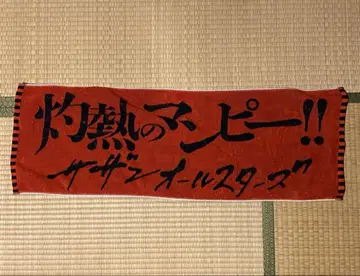 灼熱のマンピー!!
サザンオールスターズ